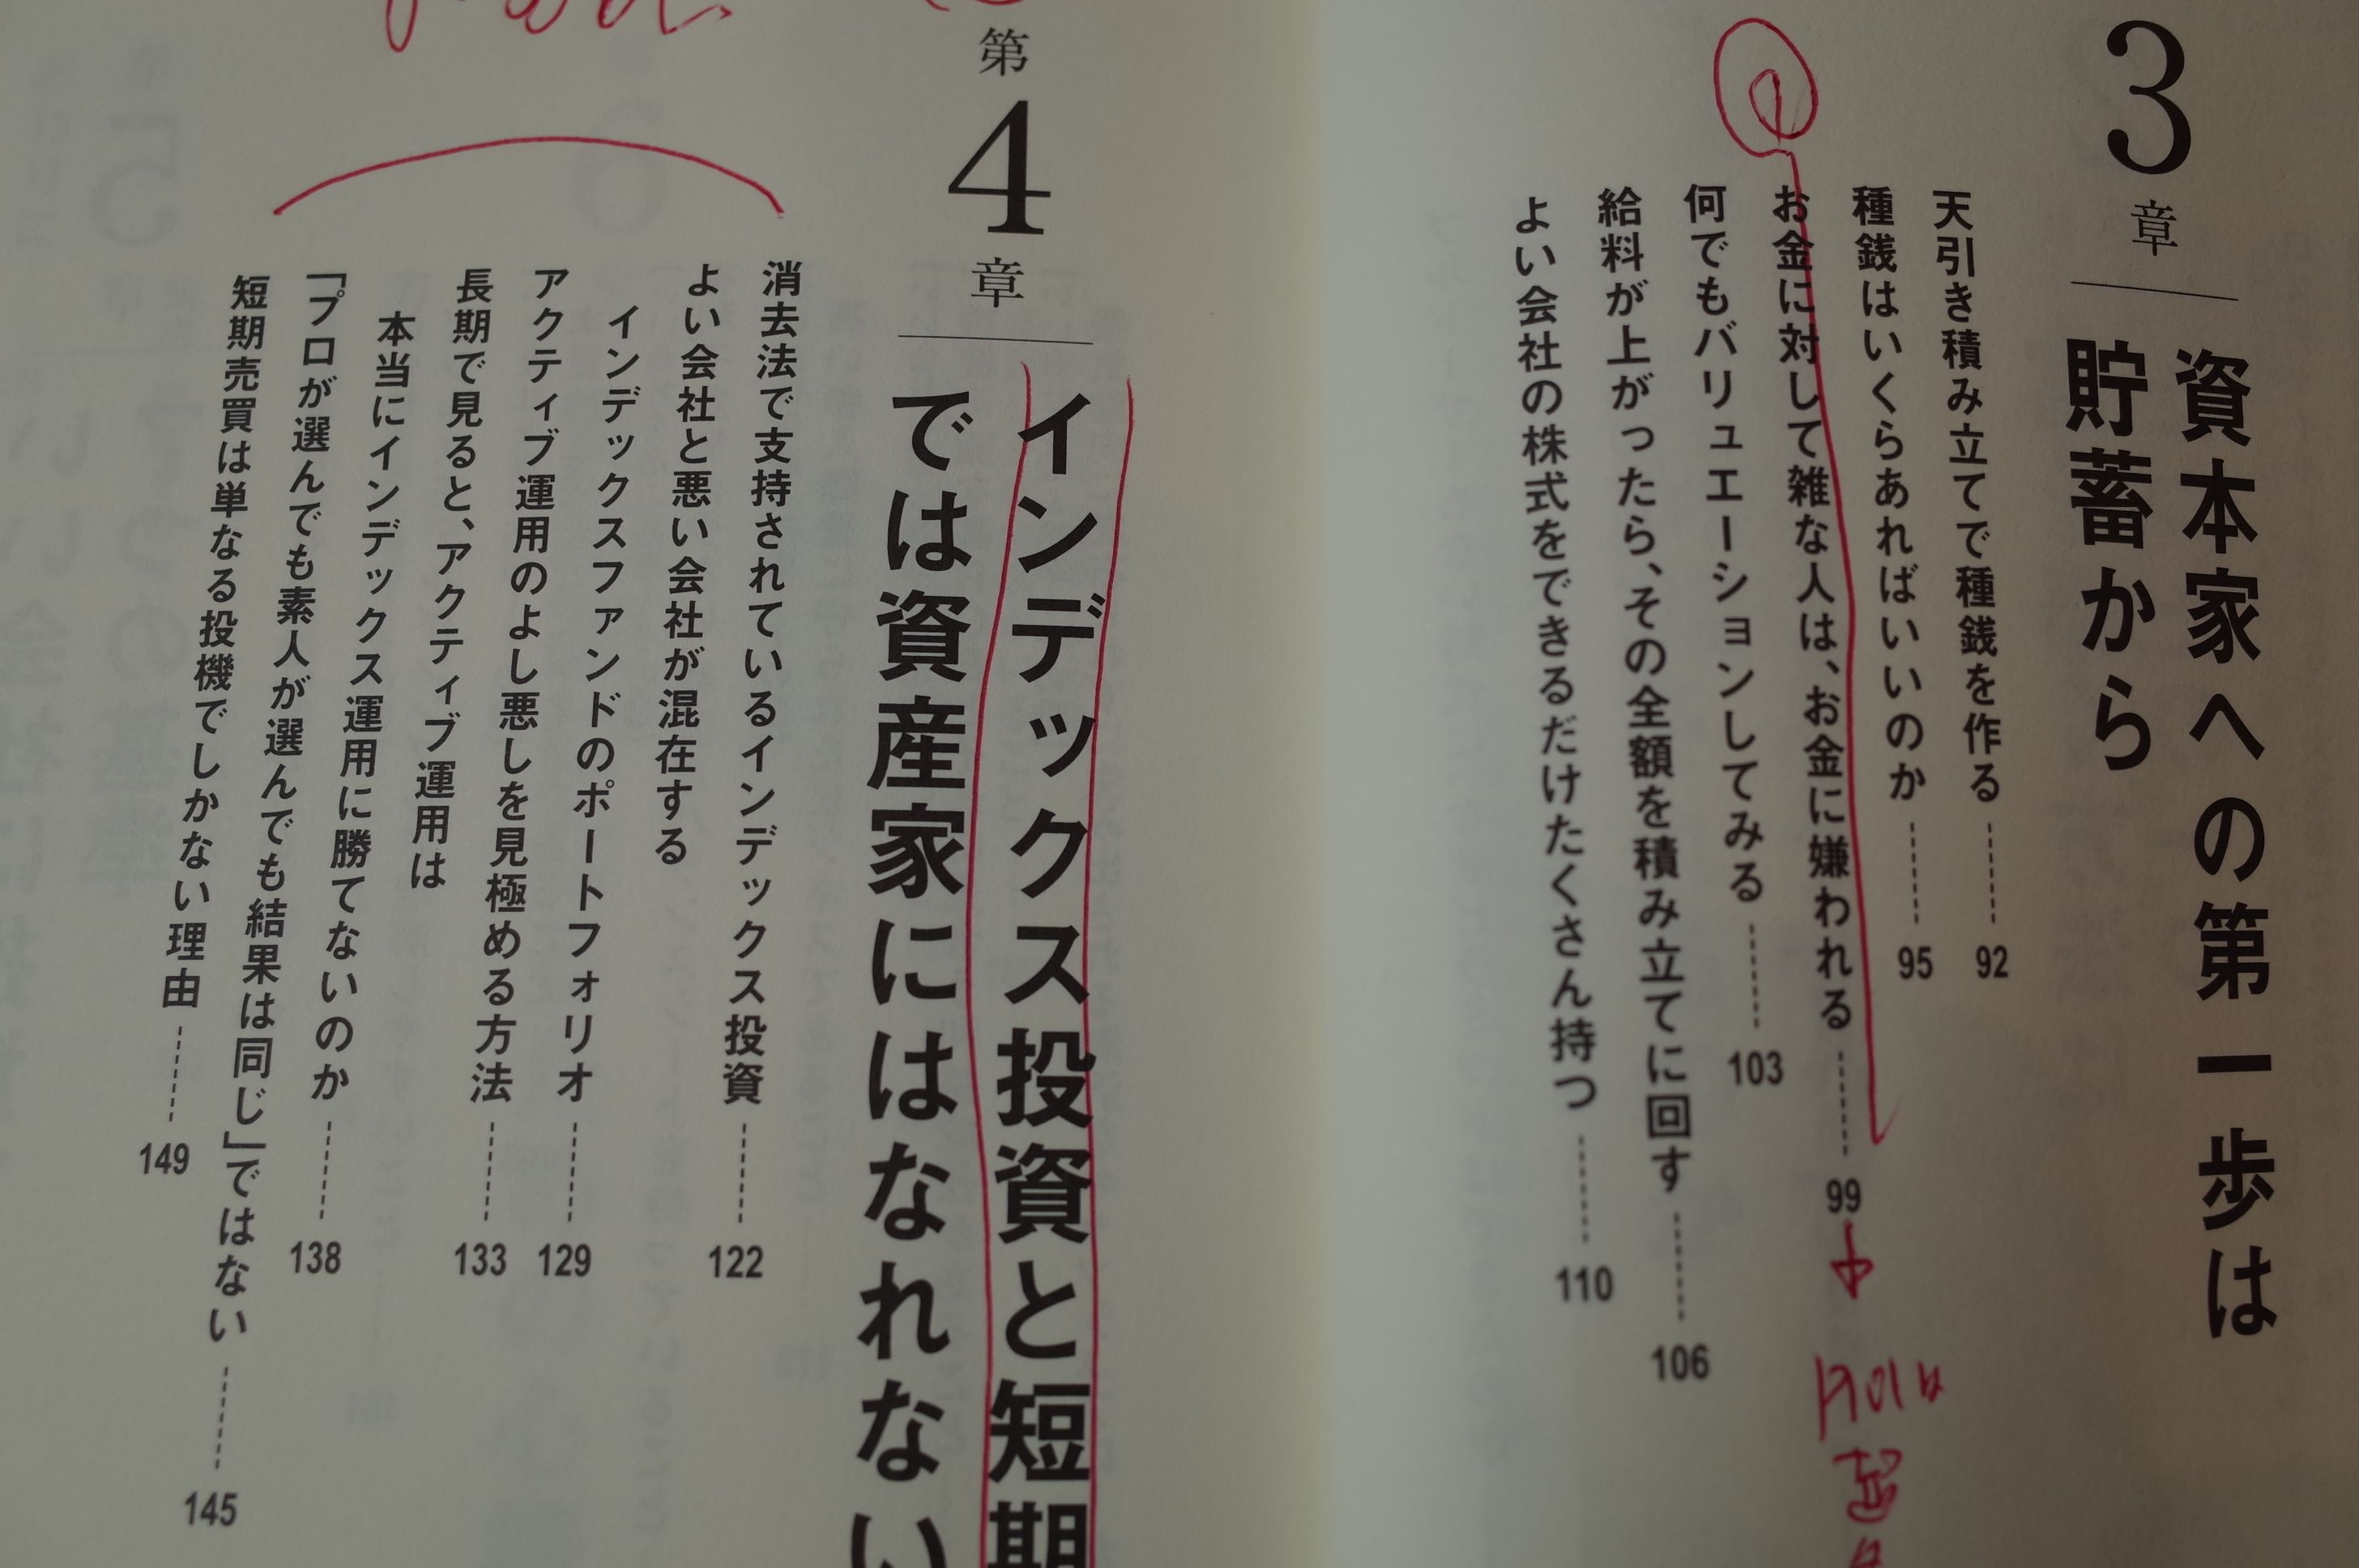 3章
資本家への第一歩は
貯蓄から
天引き積み立てで種銭を作る 92
種銭はいくらあればいいのか 95
お金に対して雑な人は、お金に嫌われる 99
何でもバリュエーションしてみる 103
給料が上がったら、その全額を積み立てに回す 106
よい会社の株式をできるだけたくさん持つ 110
第4章
インデックス投資と短期
では資産家にはなれない
消去法で支持されているインデックス投資 122
よい会社と悪い会社が混在する
インデックスファンドのポートフォリオ 129
アクティブ運用のよし悪しを見極める方法 133
長期で見ると、アクティブ運用は
本当にインデックス運用に勝てないのか 138
「プロが選んでも素人が選んでも結果は同じ」ではない 145
短期売買は単なる投機でしかない理由 149